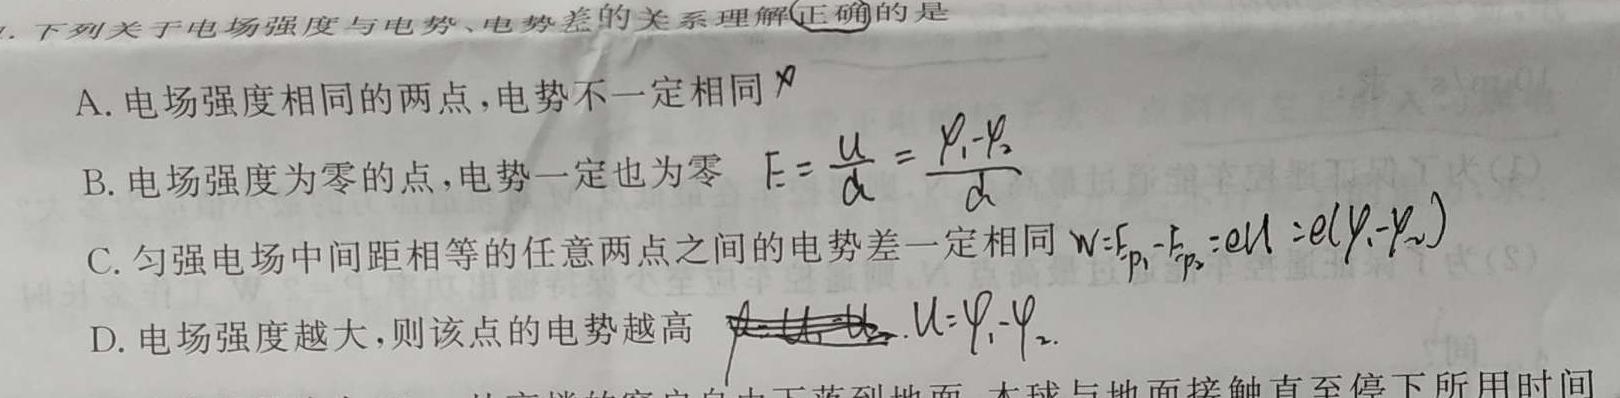 . 下列关于电场强度与电势、电势差的关系理解正确的是
A. 电场强度相同的两点,电势不一定相同 ×
B. 电场强度为零的点,电势一定也为零 E = U/d = φ₁-φ₂/d
C. 匀强电场中间距相等的任意两点之间的电势差一定相同 W=Ep₁-Ep₂=eU=e(φ₁-φ₂)
D. 电场强度越大,则该点的电势越高 U=φ₁-φ₂.
自由下落到地面 本球与地面接触直至停下所用时间